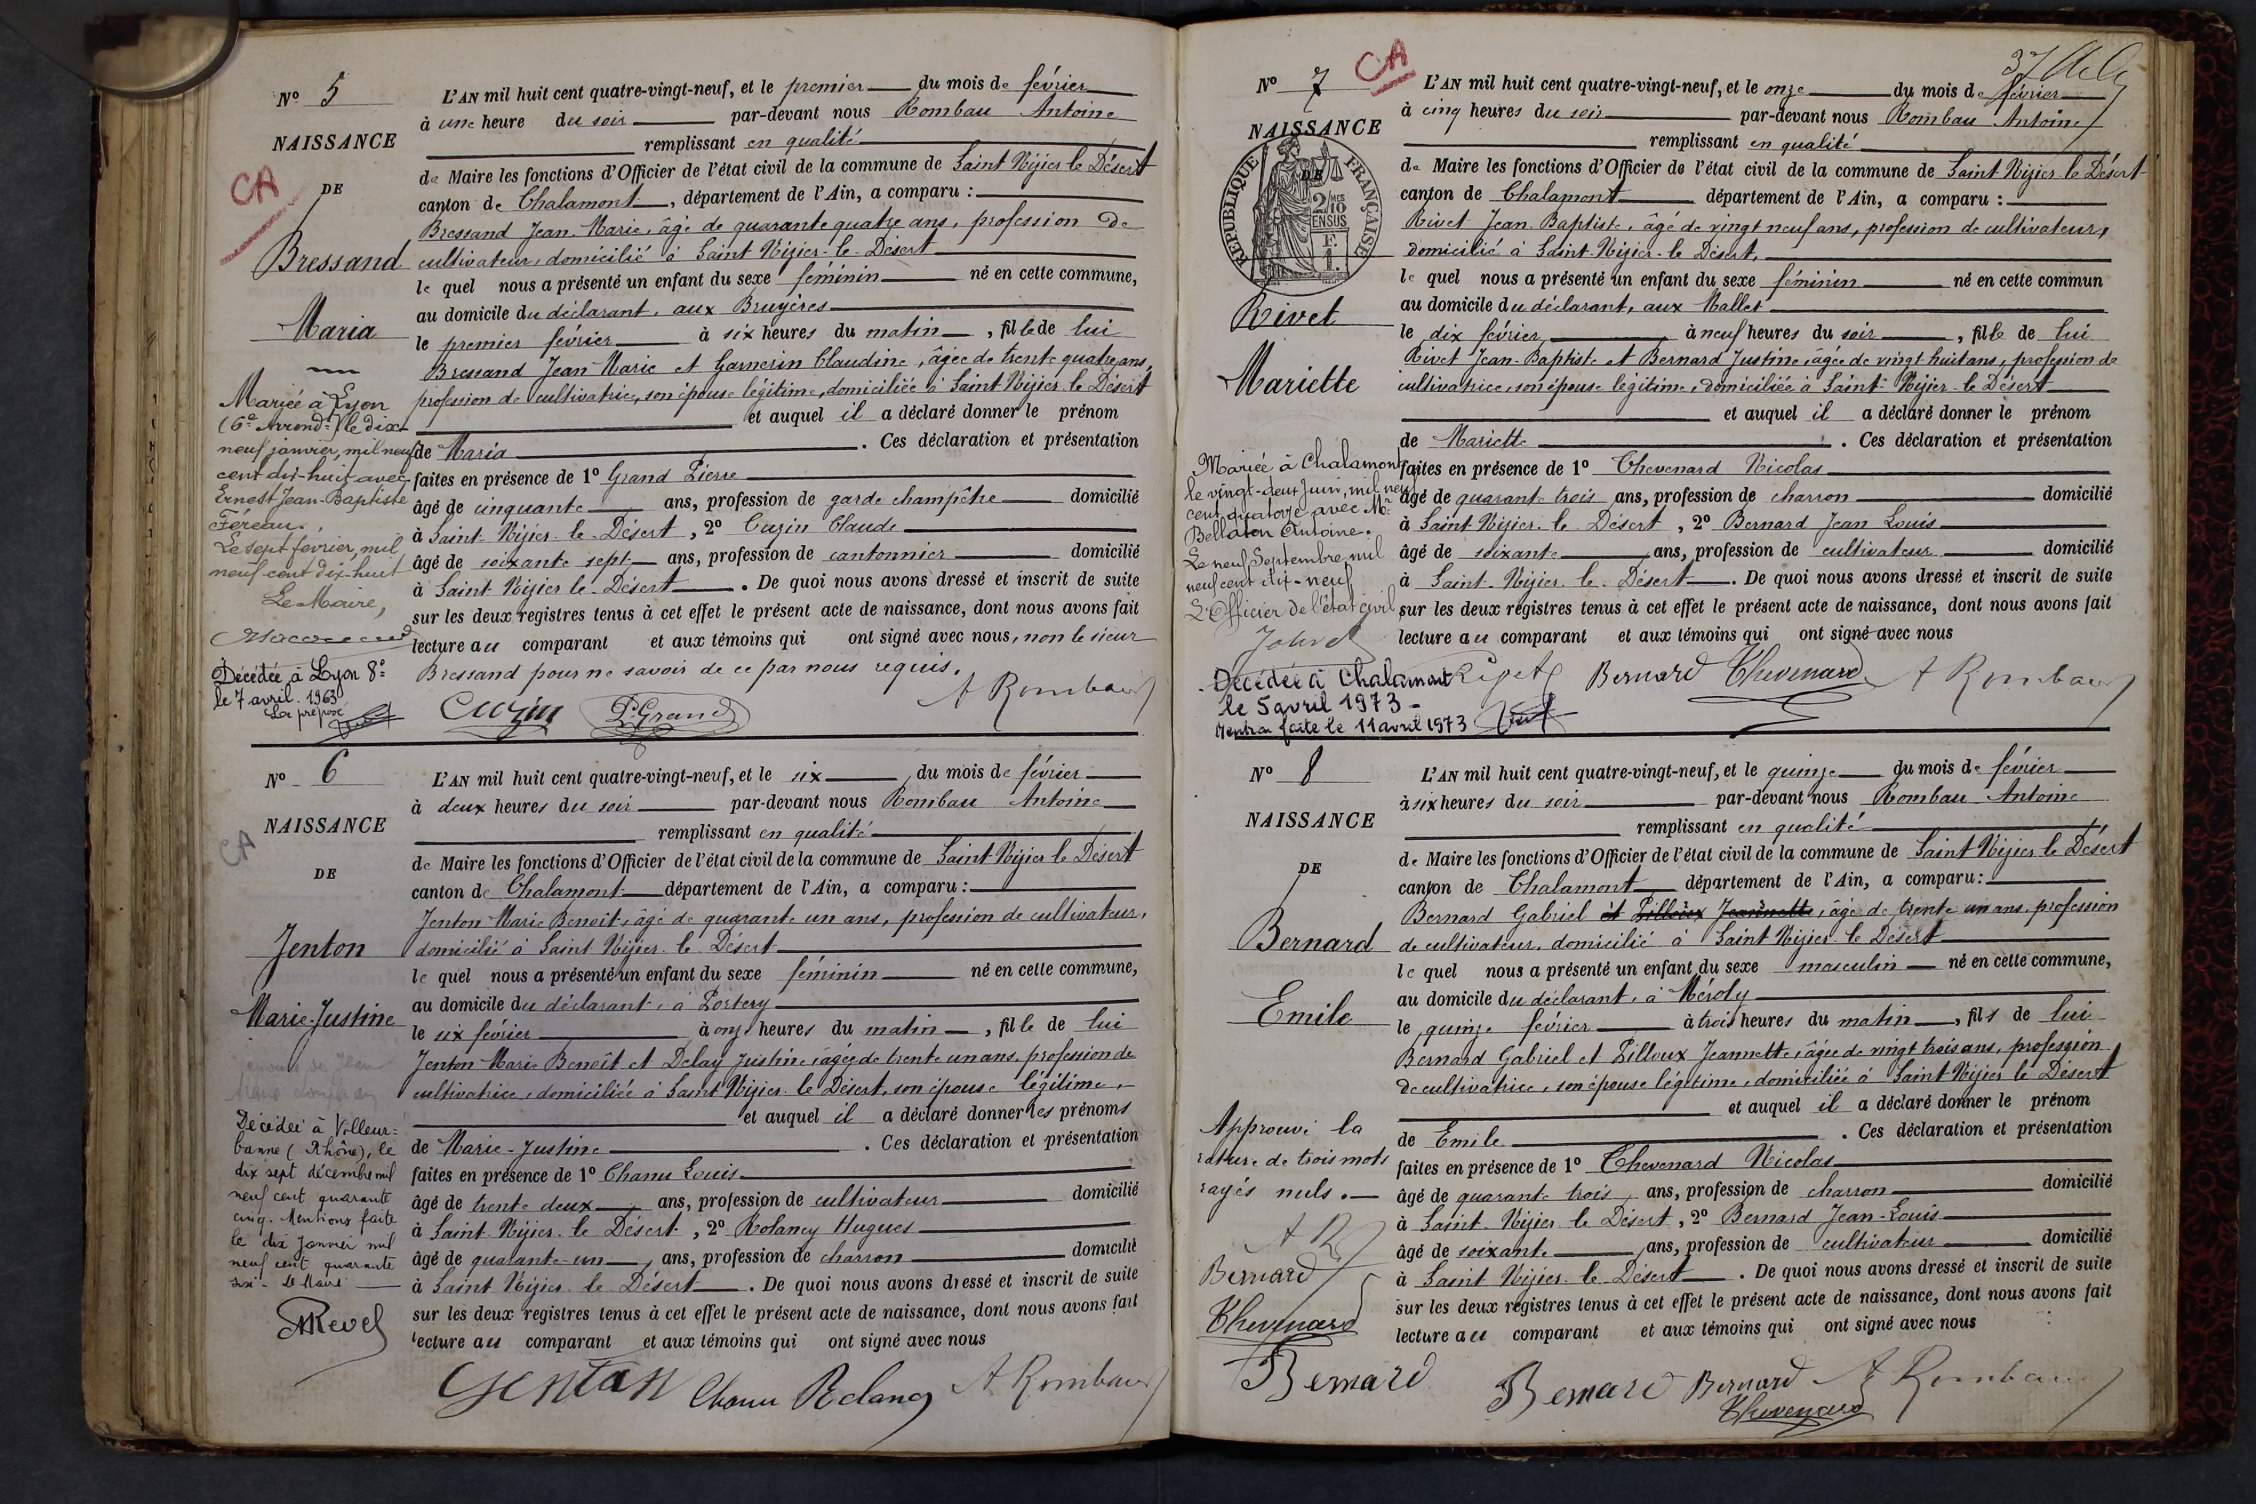 Nº 5
NAISSANCE
CA
DE
Bressand
Maria
L'AN mil huit cent quatre-vingt-neuf, et le premier du mois de février
à une heure du soir par-devant nous Rombau Antoine
remplissant en qualité
de Maire les fonctions d'Officier de l'état civil de la commune de Saint Nizier le Désert
canton de Chalamont, département de l'Ain, a comparu :
Bressand Jean Marie, âgé de quarante quatre ans, profession de
cultivateur, domicilié à Saint Nizier-le-Désert
le quel nous a présenté un enfant du sexe féminin né en cette commune,
au domicile du déclarant, aux Bruyères
le premier février à six heures du matin, fille de lui
Bressand Jean Marie et Garnerin Claudine, âgée de trente quatre ans,
profession de cultivatrice, son épouse légitime, domiciliée à Saint Nizier le Désert
et auquel il a déclaré donner le prénom
de Maria. Ces déclaration et présentation
faites en présence de 1º Grand Pierre
âgé de cinquante ans, profession de garde champêtre domicilié
à Saint-Nizier-le-Désert, 2º Cuzin Claude
âgé de soixante sept ans, profession de cantonnier domicilié
à Saint Nizier le Désert. De quoi nous avons dressé et inscrit de suite
sur les deux registres tenus à cet effet le présent acte de naissance, dont nous avons fait
lecture au comparant et aux témoins qui ont signé avec nous, non le sieur
Bressand pour ne savoir de ce par nous requis.
Cuzin P. Grand A Rombau
Mariée à Lyon
(6e Arrondt) le dix
neuf janvier, mil neuf
cent dix-huit avec
Ernest Jean-Baptiste
Féreau.
Le sept février, mil
neuf cent dix-huit
Le Maire,
Décédée à Lyon 8e
le 7 avril 1963
Le préposé
Nº 6
NAISSANCE
CA
DE
Jenton
Marie-Justine
L'AN mil huit cent quatre-vingt-neuf, et le six du mois de février
à deux heures du soir par-devant nous Rombau Antoine
remplissant en qualité
de Maire les fonctions d'Officier de l'état civil de la commune de Saint Nizier le Désert
canton de Chalamont département de l'Ain, a comparu :
Jenton Marie Benoît, âgé de quarante un ans, profession de cultivateur,
domicilié à Saint Nizier le Désert
le quel nous a présenté un enfant du sexe féminin né en cette commune,
au domicile du déclarant, à Portery
le six février à onze heures du matin, fille de lui
Jenton Marie Benoît et Delay Justine, âgée de trente un ans, profession de
cultivatrice, domiciliée à Saint Nizier le Désert, son épouse légitime,
et auquel il a déclaré donner les prénoms
de Marie-Justine. Ces déclaration et présentation
faites en présence de 1º Chanu Louis
âgé de trente deux ans, profession de cultivateur domicilié
à Saint-Nizier le Désert, 2º Rolancy Hugues
âgé de quarante-un ans, profession de charron domicilié
à Saint Nizier le Désert. De quoi nous avons dressé et inscrit de suite
sur les deux registres tenus à cet effet le présent acte de naissance, dont nous avons fait
lecture au comparant et aux témoins qui ont signé avec nous
Genton Chanu Rolancy A Rombau
Décédée à Villeur=
banne (Rhône), le
dix sept décembre mil
neuf cent quarante
cinq. Mentions faite
le dix Janvier mil
neuf cent quarante
six - Le Maire
Revel
37
Nº 7
CA
NAISSANCE
DE
REPUBLIQUE FRANÇAISE
2/10 MES
EN SUS
Rivet
Mariette
L'AN mil huit cent quatre-vingt-neuf, et le onze du mois de février
à cinq heures du soir par-devant nous Rombau Antoine
remplissant en qualité
de Maire les fonctions d'Officier de l'état civil de la commune de Saint Nizier le Désert
canton de Chalamont département de l'Ain, a comparu :
Rivet Jean-Baptiste, âgé de vingt neuf ans, profession de cultivateur,
domicilié à Saint-Nizier-le Désert,
le quel nous a présenté un enfant du sexe féminin né en cette commun
au domicile du déclarant, aux Mallet
le dix février, à neuf heures du soir, fille de lui
Rivet Jean-Baptiste et Bernard Justine, âgée de vingt huit ans, profession de
cultivatrice, son épouse légitime, domiciliée à Saint-Nizier-le Désert
et auquel il a déclaré donner le prénom
de Mariette. Ces déclaration et présentation
faites en présence de 1º Thevenard Nicolas
âgé de quarante trois ans, profession de charron domicilié
à Saint Nizier le Désert, 2º Bernard Jean Louis
âgé de soixante ans, profession de cultivateur domicilié
à Saint-Nizier le Désert. De quoi nous avons dressé et inscrit de suite
sur les deux registres tenus à cet effet le présent acte de naissance, dont nous avons fait
lecture au comparant et aux témoins qui ont signé avec nous
Rivet Bernard Thevenard A Rombau
Mariée à Chalamont
le vingt-deux Juin, mil neuf
cent quatorze avec Mr
Bellaton Antoine.
Le neuf Septembre mil
neuf cent dix-neuf
L'Officier de l'état civil
Décédée à Chalamont
le 5 avril 1973 -
Mention faite le 11 avril 1973
Nº 8
NAISSANCE
DE
Bernard
Emile
L'AN mil huit cent quatre-vingt-neuf, et le quinze du mois de février
à six heures du soir par-devant nous Rombau Antoine
remplissant en qualité
de Maire les fonctions d'Officier de l'état civil de la commune de Saint Nizier le Désert
canton de Chalamont département de l'Ain, a comparu :
Bernard Gabriel et Pilloux Jeannette, âgé de trente un ans, profession
de cultivateur, domicilié à Saint Nizier le Désert
le quel nous a présenté un enfant du sexe masculin né en cette commune,
au domicile du déclarant, à Méroly
le quinze février à trois heures du matin, fils de lui
Bernard Gabriel et Pilloux Jeannette, âgée de vingt trois ans, profession
de cultivatrice, son épouse légitime, domiciliée à Saint Nizier le Désert
et auquel il a déclaré donner le prénom
de Emile. Ces déclaration et présentation
faites en présence de 1º Thevenard Nicolas
âgé de quarante trois ans, profession de charron domicilié
à Saint-Nizier le Désert, 2º Bernard Jean-Louis
âgé de soixante ans, profession de cultivateur domicilié
à Saint Nizier le Désert. De quoi nous avons dressé et inscrit de suite
sur les deux registres tenus à cet effet le présent acte de naissance, dont nous avons fait
lecture au comparant et aux témoins qui ont signé avec nous
Approuvé la
rature de trois mots
rayés nuls.
A R
Bernard
Thevenard
Bernard
Bernard Bernard A Rombau
Thevenard